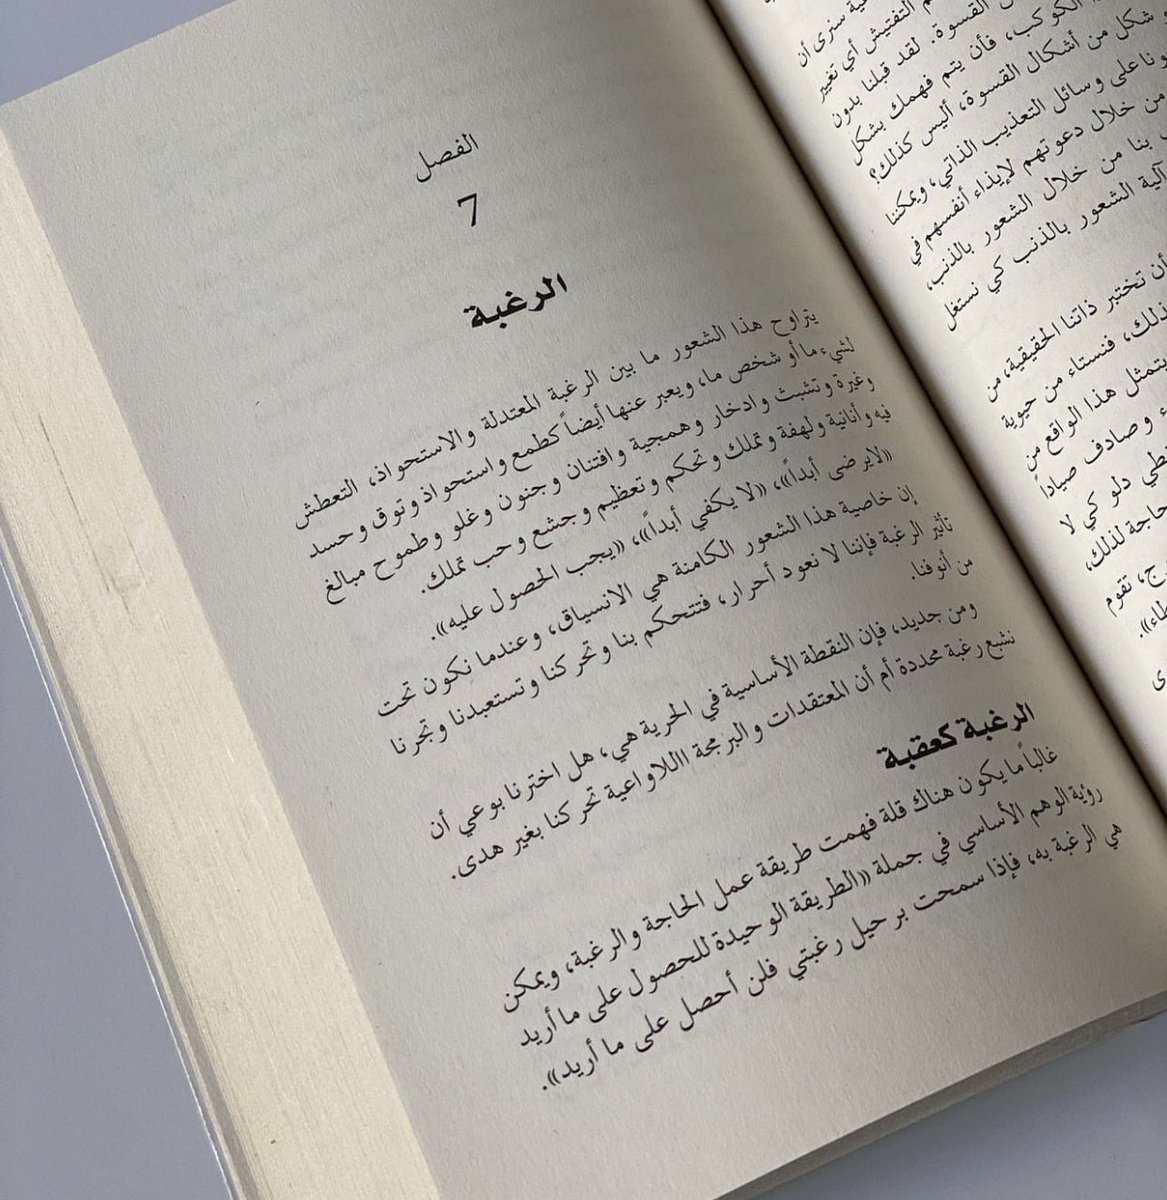 سنرى أن
التفتيش أي تغيير
القسوة. لقد قبلنا بدون
الكوكب، فأن يتم فهمك بشكل
شكل من أشكال القسوة، أليس كذلك؟
على وسائل التعذيب الذاتي، ويمكننا
من خلال دعوتهم لإيذاء أنفسهم في
بنا من خلال الشعور بالذنب،
آلية الشعور بالذنب كي نستغل
أن تختبر ذاتنا الحقيقية، من
ذلك، فنستاء من حيوية
يتمثل هذا الواقع من
وصادف صياداً
دلو كي لا
حاجة لذلك،
تقوم
الفصل
7
الرغبة
يتراوح هذا الشعور ما بين الرغبة المعتدلة والاستحواذ، التعطش
لشيء ما أو شخص ما، ويعبر عنها أيضاً كطمع واستحواذ وتوق وحسد
وغيرة وتشبث وادخار وهمجية وافتتان وجنون وغلو وطموح مبالغ
فيه وأنانية ولهفة وتملك وتحكم وتعظيم وجشع وحب تملك.
«لايرضى أبداً»، «لا يكفي أبداً»، «يجب الحصول عليه».
إن خاصية هذا الشعور الكامنة هي الانسياق، وعندما نكون تحت
تأثير الرغبة فإننا لا نعود أحرار، فتتحكم بنا وتحركنا وتستعبدنا وتجرنا
من أنوفنا.
ومن جديد، فإن النقطة الأساسية في الحرية هي، هل اخترنا بوعي أن
نشبع رغبة محددة أم أن المعتقدات والبرمجة االلاواعية تحركنا بغير هدى.
الرغبة كعقبة
غالباً ما يكون هناك قلة فهمت طريقة عمل الحاجة والرغبة، ويمكن
رؤية الوهم الأساسي في جملة «الطريقة الوحيدة للحصول على ما أريد
هي الرغبة به، فإذا سمحت برحيل رغبتي فلن أحصل على ما أريد».